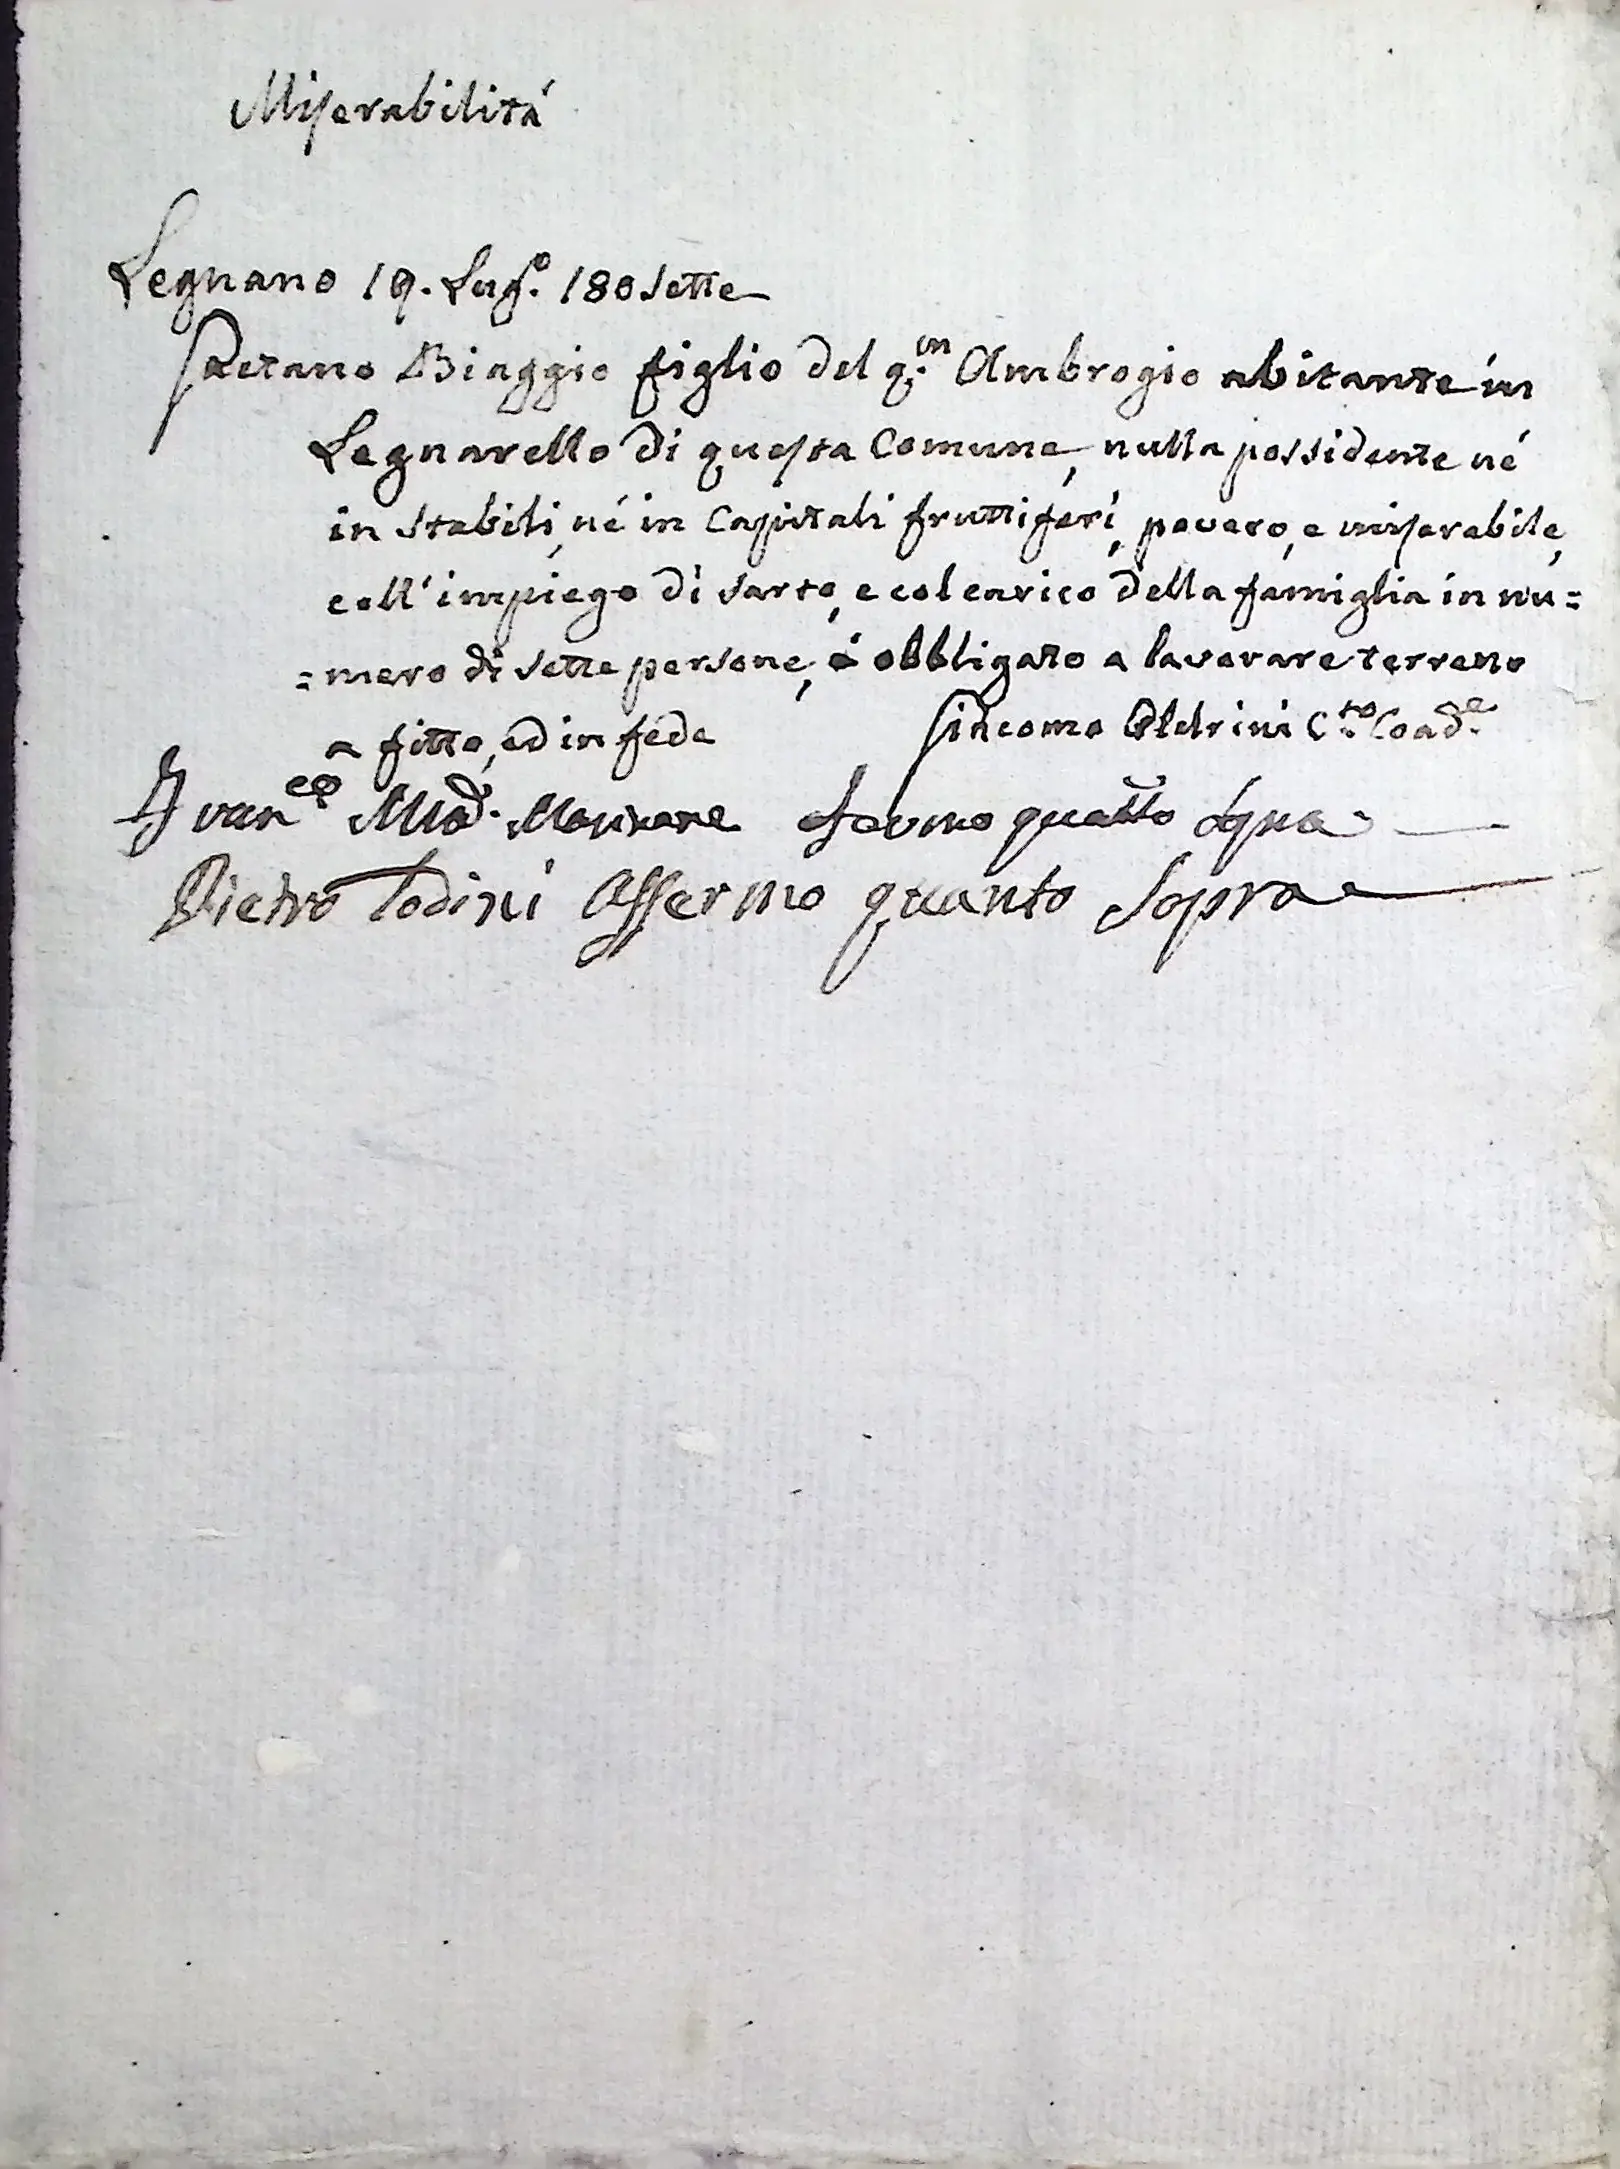 Miserabilitá
Legnano 19. Lug.o 180sette
Gaetano Biaggio figlio del q.m Ambrogio abitante in
Legnarello di questa Comune, nulla possidente né
in Stabili, né in Capitali fruttiferi, povero, e miserabile,
coll'impiego di sarto, e col carico della famiglia in nu=
=mero di sette persone, é obbligato a lavorare terreno
a fitto, ed in fede Giacomo Oldrini C.to Coad.e
Fran.co affermo quatto Sopra
Pietro Todini Affermo quanto Sopra